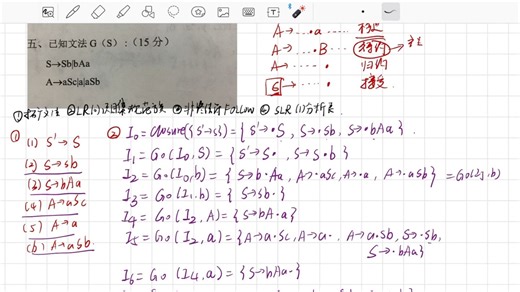 五、已知文法 G（S）：（15 分）
S→Sb|bAa
A→aSc|a|aSb
A→…·a…… 移进
A→…·B… 待约
A→……· 归约
S→……· 接受
②LR(0)项目集规范族 ④SLR(1)分析表
① (1) S'→S
(2) S→Sb
(3) S→bAa
(4) A→aSc
(5) A→a
(6) A→aSb
② I₀=closure({S'→S})={S'→·S, S→·Sb, S→·bAa}.
I₁=Go(I₀,S)={S'→S·, S→S·b}
I₂=Go(I₀,b)={S→b·Aa, A→·aSc, A→·a, A→·aSb} =Go(I₅,b)
I₃=Go(I₁,b)={S→Sb·}
I₄=Go(I₂,A)={S→bA·a}
I₅=Go(I₂,a)={A→a·Sc, A→a·, A→a·Sb, S→·Sb,
S→·bAa}
I₆=Go(I₄,a)={S→bAa·}